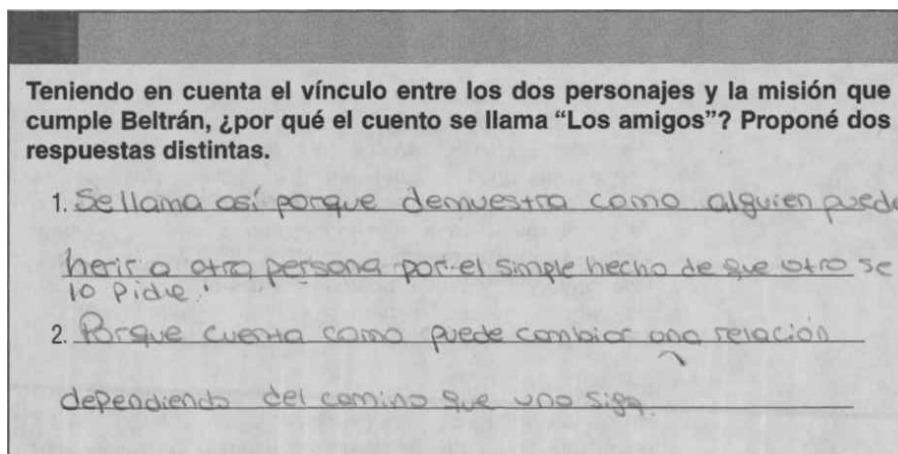 Teniendo en cuenta el vínculo entre los dos personajes y la misión que
cumple Beltrán, ¿por qué el cuento se llama “Los amigos”? Proponé dos
respuestas distintas.
1. Se llama así porque demuestra como alguien puede
herir a otra persona por el simple hecho de que otro se
lo pidie.
2. Porque cuenta como puede cambiar una relación
dependiendo del camino que uno siga.